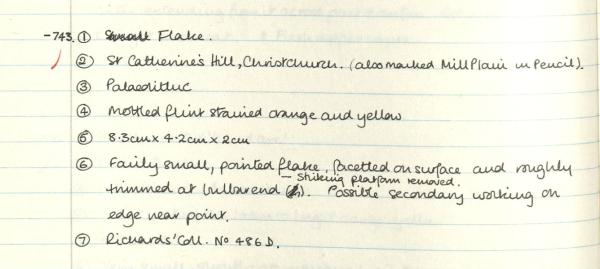 -743. ① Flake.
② St Catherine's Hill, Christchurch. (also marked Mill Plain in Pencil).
③ Palaeolithic
④ Mottled flint stained orange and yellow
⑤ 8.3cm x 4.2cm x 2cm
⑥ Fairly small, pointed flake, facetted on surface and roughly
- Striking platform removed.
trimmed at bulbar end. Possible secondary working on
edge near point.
⑦ Richards' Coll. No 486D.